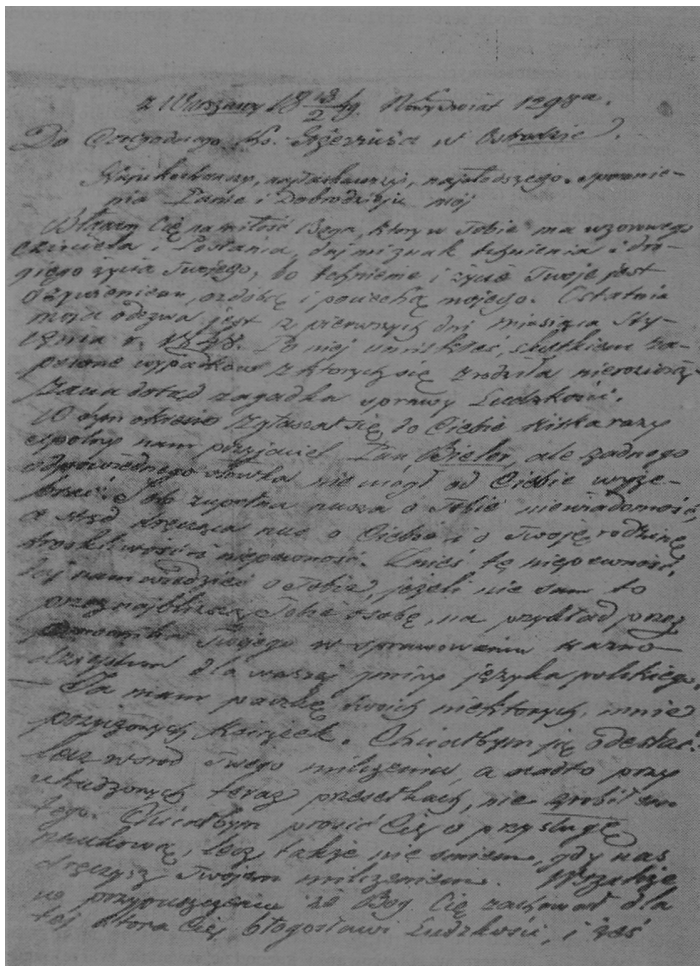 z Warszawy 18 13/2 49. Nowyświat 1298a.
Do Czcigodnego Ks. Gizewiusza w Ostrodzie.
Najukochańszy, najłaskawszy, najsłodszego wspomnie-
nia Panie i Dobrodzieju mój
Błagam Cię na miłość Boga, który w Tobie ma wzorowego
czciciela i Posłania, daj mi znak tchnienia i dro-
giego życia Twojego, bo tchnienie i życie Twoje jest
ożywieniem, ozdobą i pociechą mojego. Ostatnia
moja odezwa jest z pierwszych dni miesiąca Sty-
cznia r. 1848. Po niej umilkłeś, skutkiem za-
wypadków z których się zrodziła nierozwią-
zana dotąd zagadka sprawy Ludzkości.
W tym okresie zgłaszał się do Ciebie kilka razy
wspólny nam przyjaciel Pan Bieler, ale żadnego
odpowiedniego słówka nie mógł od Ciebie wyże-
brać. Stąd zupełna nasza o Tobie niewiadomość,
a stąd dręcząca nas o Ciebie i o Twoję rodzinę
troskliwość i niepewność. Znieś tę niepewność,
daj nam wiedzieć o Tobie, jeżeli nie sam to
przez najbliższą Tobie osobę, na przykład przez
pomocnika Twojego w sprawowaniu kazno-
dziejstwa dla waszej gminy języka polskiego.
Ja mam paczkę Twoich niektórych, mnie
pożyczonych Książek. Chciałbym ję odesłać:
lecz wśród Twego milczenia, a nadto przy
utrudzonych teraz przesełkach, nie zrobiłem
tego. Chciałbym prosić Cię o przysługę
naukową, lecz także nie śmiem, gdy nas
dręczysz Twojem milczeniem. Wszakże
w przypuszczeniu że Bog Cię zachował dla
tej która Cię błogosławi Ludzkości, i żeś